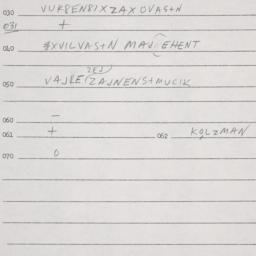 030 VURBENBIXZAXOVAS+N
031 +
040 #XVILVAS+N MAJIEHENT
ZRJ
050 VAJRE(ZAJNENS+MUCIK
060 –
061 + 062 KOLZMAN
070 0